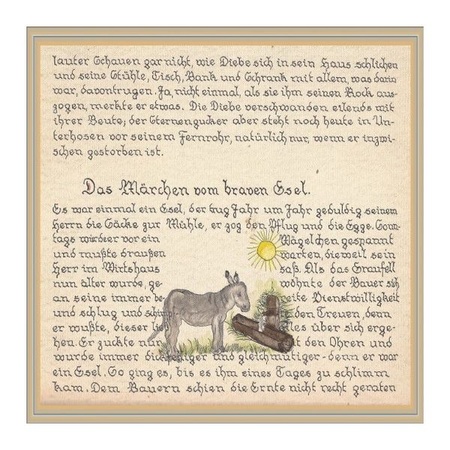 lauter Schauen gar nicht, wie Diebe sich in sein Haus schlichen
und seine Stühle, Tisch, Bank und Schrank mit allem, was darin
war, davontrugen. Ja, nicht einmal, als sie ihm seinen Rock aus-
zogen, merkte er etwas. Die Diebe verschwanden eilends mit
ihrer Beute; der Sternengucker aber steht noch heute in Un-
terhosen vor seinem Fernrohr, natürlich nur, wenn er inzwi-
schen gestorben ist.
Das Märchen vom braven Esel.
Es war einmal ein Esel, der trug Jahr um Jahr geduldig seinem
Herrn die Säcke zur Mühle, er zog den Pflug und die Egge. Sonn-
tags wurde er vor ein Wägelchen gespannt
und mußte draußen warten, dieweil sein
Herr im Wirtshaus saß. Als das Graufell
nun älter wurde, ge- wöhnte der Bauer sich
an seine immer be- reite Dienstwilligkeit
und schlug und schimpfte den Treuen, denn
er wußte, dieser ließ alles über sich erge-
hen. Er zuckte nur mit den Ohren und
wurde immer dickfelliger und gleichmütiger - denn er war
ein Esel. So ging es, bis es ihm eines Tages zu schlimm
kam. Dem Bauern schien die Ernte nicht recht geraten